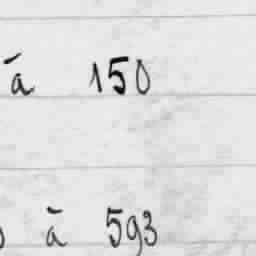 à 150
à 593